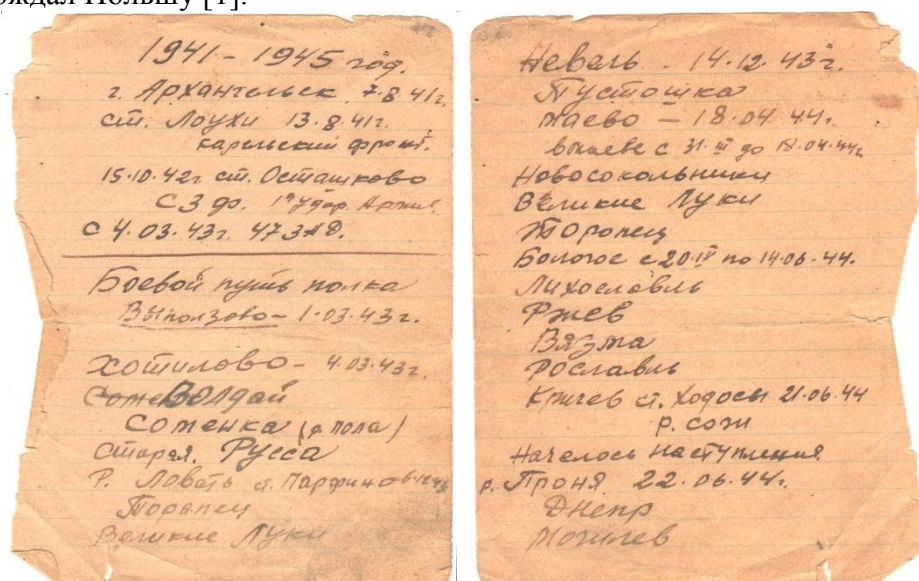 ждал Польшу [1].
1941 - 1945 год.
г. Архангельск 7.8 41г.
ст. Лоухи 13.8 41г.
карельский фронт.
15.10.42г. ст. Осташково
СЗ фр. 1я Удар. Армия.
с 4.03.43г. 47ЗАД.
Боевой путь полка
Выползово - 1.03.43г.
Хотилово - 4.03.43г.
Волдай
Соменка (р. Пола)
Старая. Русса
Р. Ловать ст. Парфино
Торапец
Великие Луки
Невель - 14.12.43г.
Пустошка
маево - 18.04 44г.
с 31.III до 18.04.44г.
Новосокольники
Великие Луки
Торопец
Бологое с 20.IV по 14.06.44.
Лихославль
Ржев
Вязма
Рославль
Кричев ст. Ходосы 21.06.44
р. сож
Началось наступление
р. Проня 22.06.44г.
Днепр
Могилев